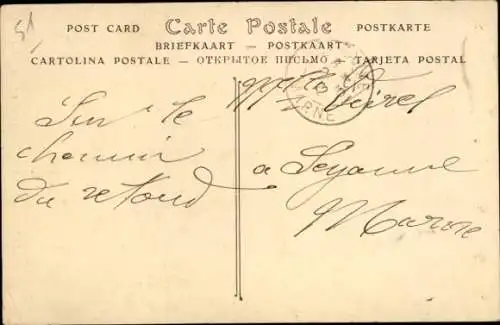 POST CARD Carte Postale POSTKARTE
BRIEFKAART — POSTKAART
CARTOLINA POSTALE — ОТКРЫТОЕ ПИСЬМО — TARJETA POSTAL
Sur le
chemin
du retour
Mlle
a Sezanne
Marne